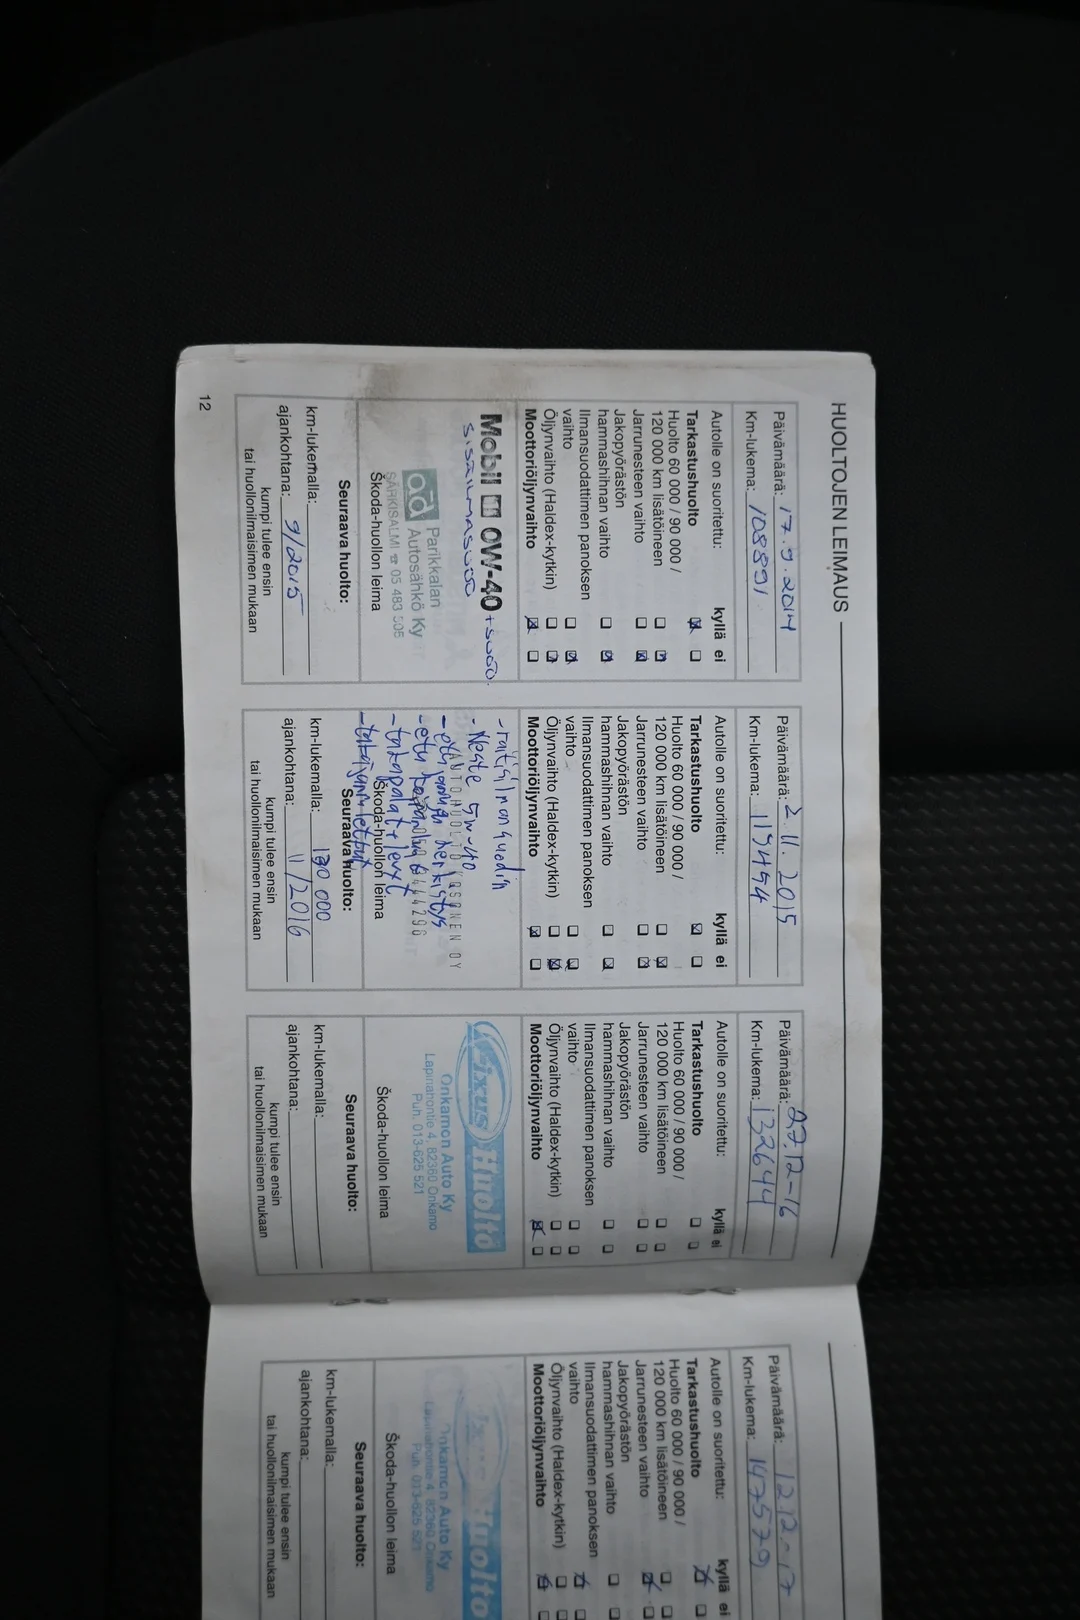 HUOLTOJEN LEIMAUS
Päivämäärä: 17.9.2014
Km-lukema: 108891
Autolle on suoritettu: kyllä ei
Tarkastushuolto
Huolto 60 000 / 90 000 /
120 000 km lisätöineen
Jarrunesteen vaihto
Jakopyörästön
hammashihnan vaihto
Ilmansuodattimen panoksen
vaihto
Öljynvaihto (Haldex-kytkin)
Moottoriöljynvaihto
Mobil 1 0W-40 + suod.
SISÄILMASUOD
ad Parikkalan
Autosähkö Ky
SÄRKISALMI ☎ 05 483 506
Škoda-huollon leima
Seuraava huolto:
km-lukemalla:
ajankohtana: 9/2015
kumpi tulee ensin
tai huollonilmaisimen mukaan
12
Päivämäärä: 2.11.2015
Km-lukema: 119454
Autolle on suoritettu: kyllä ei
Tarkastushuolto
Huolto 60 000 / 90 000 /
120 000 km lisätöineen
Jarrunesteen vaihto
Jakopyörästön
hammashihnan vaihto
Ilmansuodattimen panoksen
vaihto
Öljynvaihto (Haldex-kytkin)
Moottoriöljynvaihto
- Neste 5w-40
AUTOHUOLTO KOSONEN OY
- etujarrujen herkistys
- takapalat + levyt
Škoda-huollon leima
Seuraava huolto:
km-lukemalla: 130 000
ajankohtana: 11/2016
kumpi tulee ensin
tai huollonilmaisimen mukaan
Päivämäärä: 27.12-16
Km-lukema: 132644
Autolle on suoritettu: kyllä ei
Tarkastushuolto
Huolto 60 000 / 90 000 /
120 000 km lisätöineen
Jarrunesteen vaihto
Jakopyörästön
hammashihnan vaihto
Ilmansuodattimen panoksen
vaihto
Öljynvaihto (Haldex-kytkin)
Moottoriöljynvaihto
Fixus Huolto
Onkamon Auto Ky
Lapinahontie 4, 82360 Onkamo
Puh. 013-625 521
Škoda-huollon leima
Seuraava huolto:
km-lukemalla:
ajankohtana:
kumpi tulee ensin
tai huollonilmaisimen mukaan
Päivämäärä: 12.12-17
Km-lukema: 147579
Autolle on suoritettu: kyllä ei
Tarkastushuolto
Huolto 60 000 / 90 000 /
120 000 km lisätöineen
Jarrunesteen vaihto
Jakopyörästön
hammashihnan vaihto
Ilmansuodattimen panoksen
vaihto
Öljynvaihto (Haldex-kytkin)
Moottoriöljynvaihto
Fixus Huolto
Onkamon Auto Ky
Lapinahontie 4, 82360 Onkamo
Puh. 013-625 521
Škoda-huollon leima
Seuraava huolto:
km-lukemalla:
ajankohtana:
kumpi tulee ensin
tai huollonilmaisimen mukaan